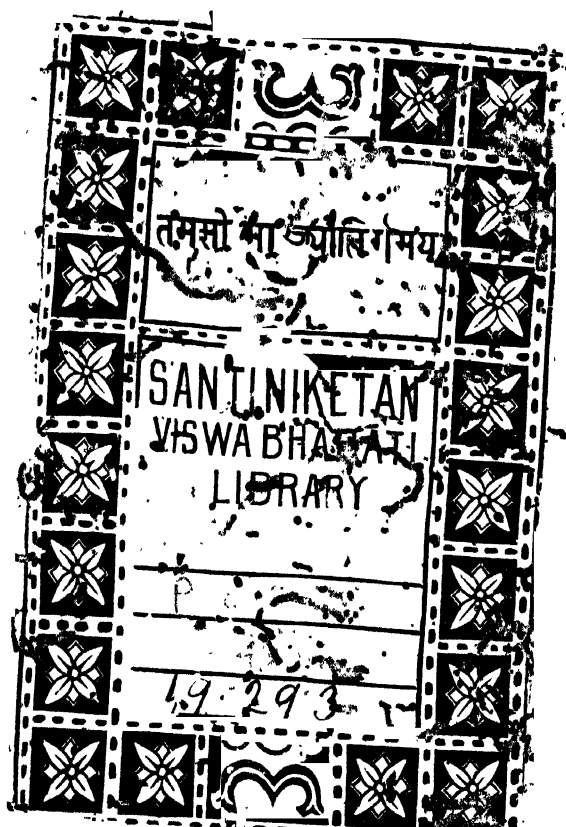 तमसो मा ज्योतिर्गमय
SANTINIKETAN
VISWA BHARATI
LIBRARY
P
19293